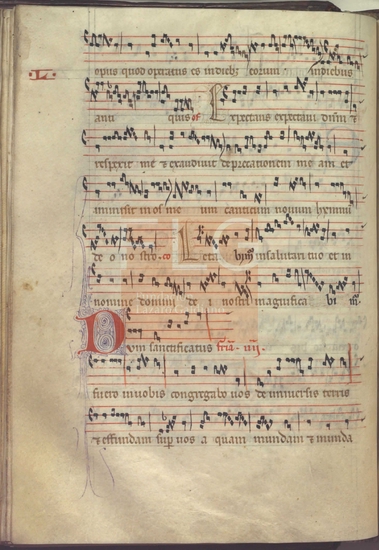 opus quod operatus es in dieb; eorum in diebus
anti quis of Expectans expectaui dñm &
respexit me & exaudiuit deprecationem meam et
inmisit in os me um canticum nouum hymnum
de o nostro. co Leta bim᷒ in salutari tuo et in
nomine domini de i nostri magnifica bi m᷒.
Dum sanctificatus fria. iiij.
fuero in uobis congregabo uos de uniuersis terris
& effundam sup uos a quam mundam & munda